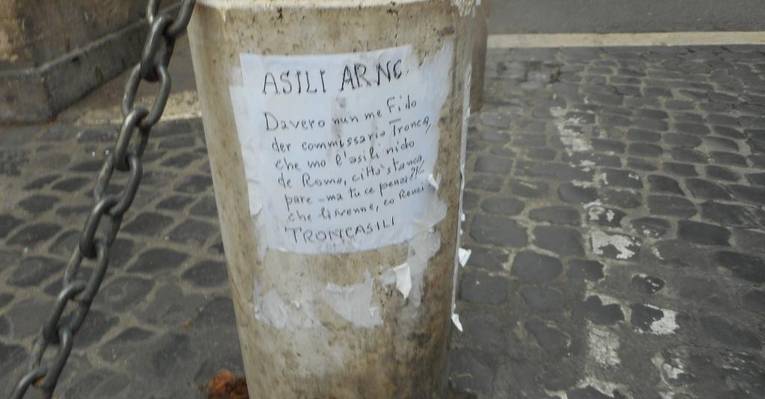 ASILI AR NC.
Davero nun me fido
der commissario Tronca,
che mo l'asili nido
de Roma, città stanca,
pare - ma tu ce pensi?! -
che li venne, co Renzi
TRONCASILI